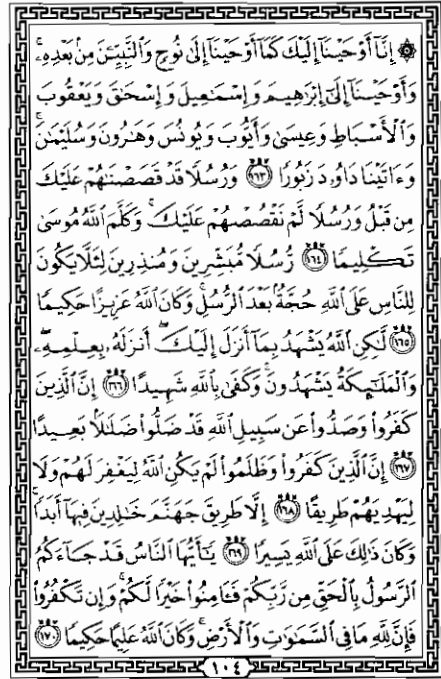 ۞ إِنَّآ أَوْحَيْنَآ إِلَيْكَ كَمَآ أَوْحَيْنَآ إِلَىٰ نُوحٍ وَٱلنَّبِيِّـۧنَ مِنۢ بَعْدِهِۦۚ
وَأَوْحَيْنَآ إِلَىٰٓ إِبْرَٰهِيمَ وَإِسْمَٰعِيلَ وَإِسْحَٰقَ وَيَعْقُوبَ
وَٱلْأَسْبَاطِ وَعِيسَىٰ وَأَيُّوبَ وَيُونُسَ وَهَٰرُونَ وَسُلَيْمَٰنَۚ
وَءَاتَيْنَا دَاوُۥدَ زَبُورًا ١٦٣ وَرُسُلًا قَدْ قَصَصْنَٰهُمْ عَلَيْكَ
مِن قَبْلُ وَرُسُلًا لَّمْ نَقْصُصْهُمْ عَلَيْكَۚ وَكَلَّمَ ٱللَّهُ مُوسَىٰ
تَكْلِيمًا ١٦٤ رُّسُلًا مُّبَشِّرِينَ وَمُنذِرِينَ لِئَلَّا يَكُونَ
لِلنَّاسِ عَلَى ٱللَّهِ حُجَّةٌۢ بَعْدَ ٱلرُّسُلِۚ وَكَانَ ٱللَّهُ عَزِيزًا حَكِيمًا
١٦٥ لَّٰكِنِ ٱللَّهُ يَشْهَدُ بِمَآ أَنزَلَ إِلَيْكَۖ أَنزَلَهُۥ بِعِلْمِهِۦۖ
وَٱلْمَلَٰٓئِكَةُ يَشْهَدُونَۚ وَكَفَىٰ بِٱللَّهِ شَهِيدًا ١٦٦ إِنَّ ٱلَّذِينَ
كَفَرُوا۟ وَصَدُّوا۟ عَن سَبِيلِ ٱللَّهِ قَدْ ضَلُّوا۟ ضَلَٰلًۢا بَعِيدًا
١٦٧ إِنَّ ٱلَّذِينَ كَفَرُوا۟ وَظَلَمُوا۟ لَمْ يَكُنِ ٱللَّهُ لِيَغْفِرَ لَهُمْ وَلَا
لِيَهْدِيَهُمْ طَرِيقًا ١٦٨ إِلَّا طَرِيقَ جَهَنَّمَ خَٰلِدِينَ فِيهَآ أَبَدًاۚ
وَكَانَ ذَٰلِكَ عَلَى ٱللَّهِ يَسِيرًا ١٦٩ يَٰٓأَيُّهَا ٱلنَّاسُ قَدْ جَآءَكُمُ
ٱلرَّسُولُ بِٱلْحَقِّ مِن رَّبِّكُمْ فَـَٔامِنُوا۟ خَيْرًا لَّكُمْۚ وَإِن تَكْفُرُوا۟
فَإِنَّ لِلَّهِ مَا فِى ٱلسَّمَٰوَٰتِ وَٱلْأَرْضِۚ وَكَانَ ٱللَّهُ عَلِيمًا حَكِيمًا ١٧٠
١٠٤